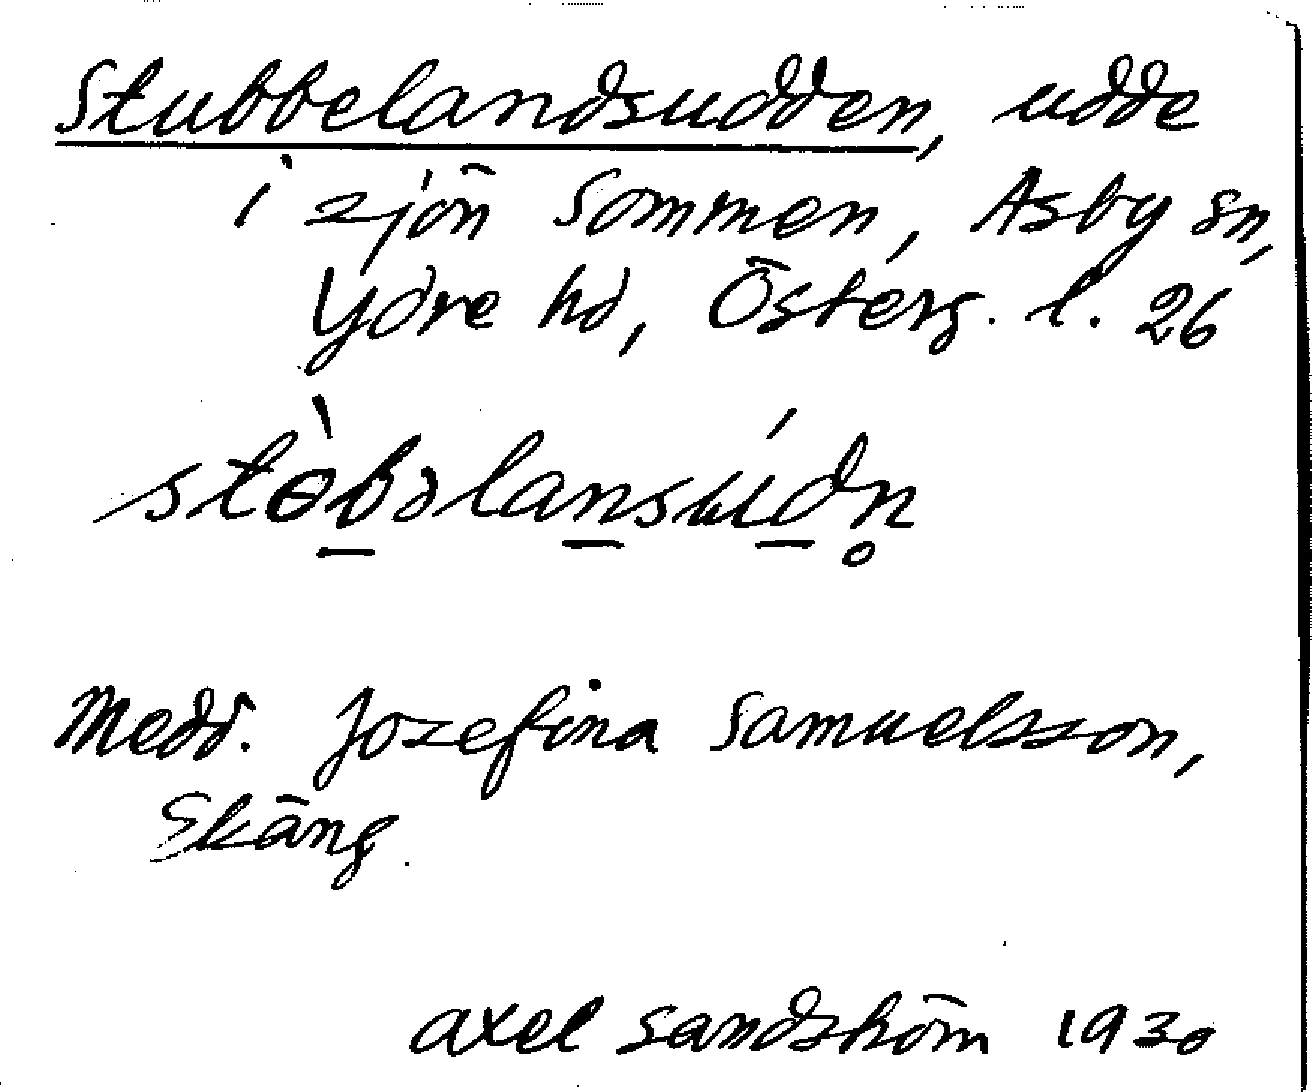 Stubbelandsudden, udde
i sjön Sommen, Asby sn,
Ydre hd, Österg. l. 26
stɵ̀b̲əlan̲súd̲n̥
Medd. Josefina Samuelsson,
Skäng.
Axel Sandström 1930